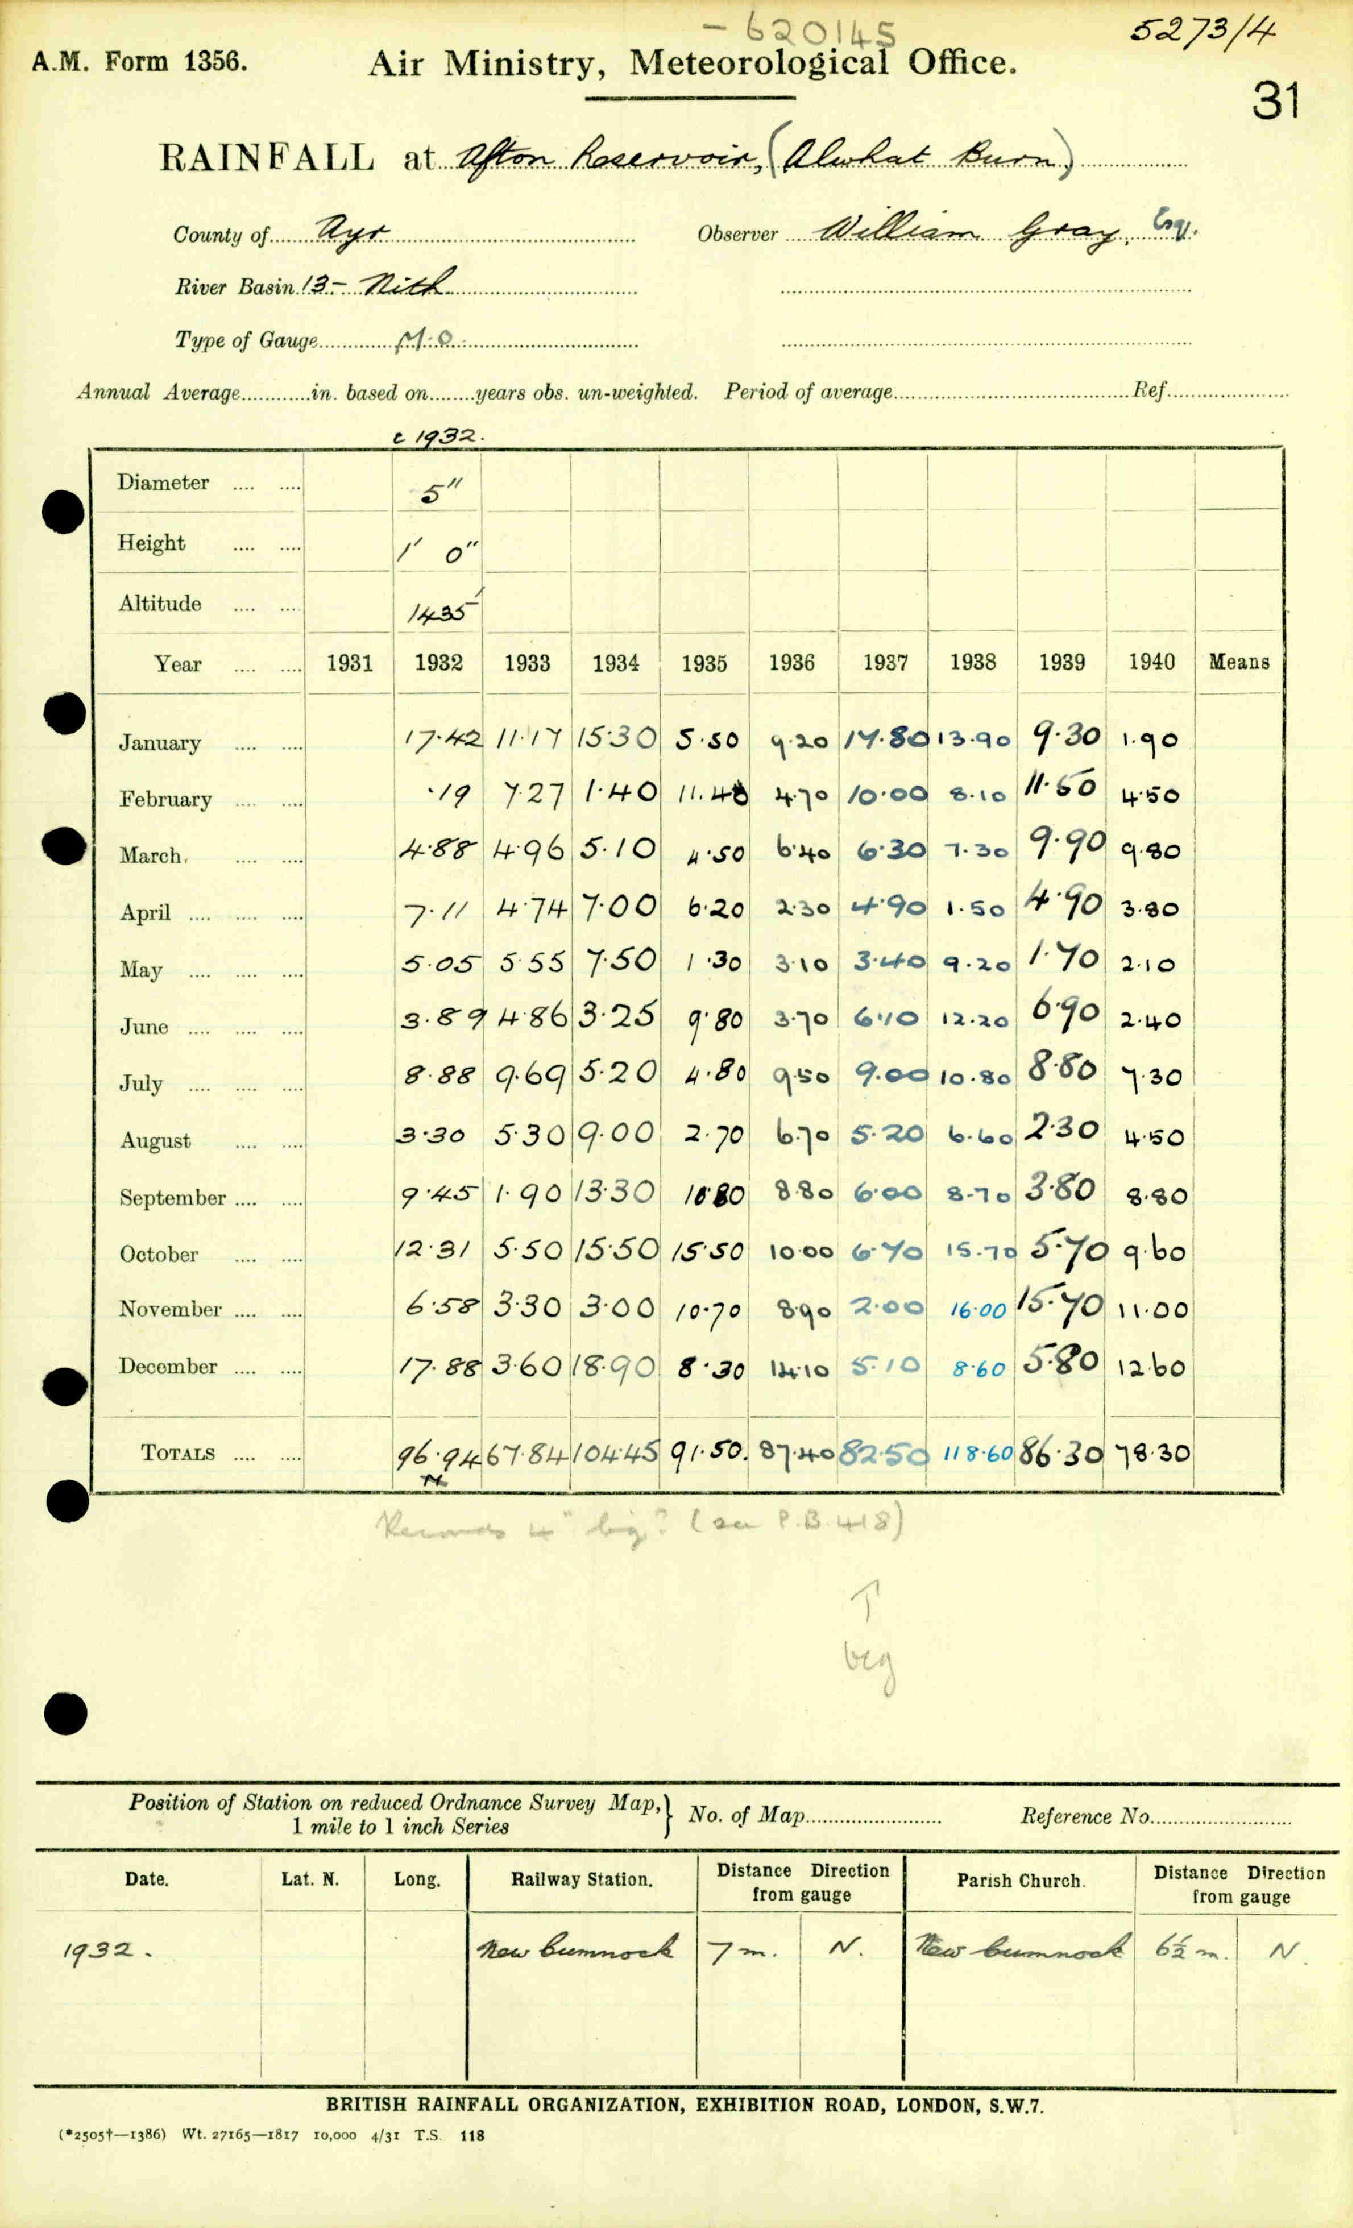 - 620145
5273/4
A.M. Form 1356.
Air Ministry, Meteorological Office.
31
RAINFALL at Afton Reservoir, (Alwhat Burn)
County of Ayr Observer William Gray, Esq.
River Basin 13 - Nith
Type of Gauge M.O.
Annual Average in. based on years obs. un-weighted. Period of average Ref.
c 1932.
Diameter 5"
Height 1' 0"
Altitude 1435'
Year 1931 1932 1933 1934 1935 1936 1937 1938 1939 1940 Means
January 17.42 11.17 15.30 5.50 9.20 17.80 13.90 9.30 1.90
February .19 7.27 1.40 11.40 4.70 10.00 8.10 11.50 4.50
March 4.88 4.96 5.10 4.50 6.40 6.30 7.30 9.90 9.80
April 7.11 4.74 7.00 6.20 2.30 4.90 1.50 4.90 3.80
May 5.05 5.55 7.50 1.30 3.10 3.40 9.20 1.70 2.10
June 3.89 4.86 3.25 9.80 3.70 6.10 12.20 6.90 2.40
July 8.88 9.69 5.20 4.80 9.50 9.00 10.80 8.80 7.30
August 3.30 5.30 9.00 2.70 6.70 5.20 6.60 2.30 4.50
September 9.45 1.90 13.30 10.80 8.80 6.00 8.70 3.80 8.80
October 12.31 5.50 15.50 15.50 10.00 6.70 15.70 5.70 9.60
November 6.58 3.30 3.00 10.70 8.90 2.00 16.00 15.70 11.00
December 17.88 3.60 18.90 8.30 14.10 5.10 8.60 5.80 12.60
TOTALS 96.94 67.84 104.45 91.50. 87.40 82.50 118.60 86.30 78.30
Records 4" big? (see P.B. 418)
Position of Station on reduced Ordnance Survey Map, 1 mile to 1 inch Series } No. of Map Reference No.
Date. Lat. N. Long. Railway Station. Distance Direction from gauge Parish Church. Distance Direction from gauge
1932. New Cumnock 7 m. N. New Cumnock 6½ m. N.
BRITISH RAINFALL ORGANIZATION, EXHIBITION ROAD, LONDON, S.W.7.
(*2505†—1386) Wt. 27165—1817 10,000 4/31 T.S. 118